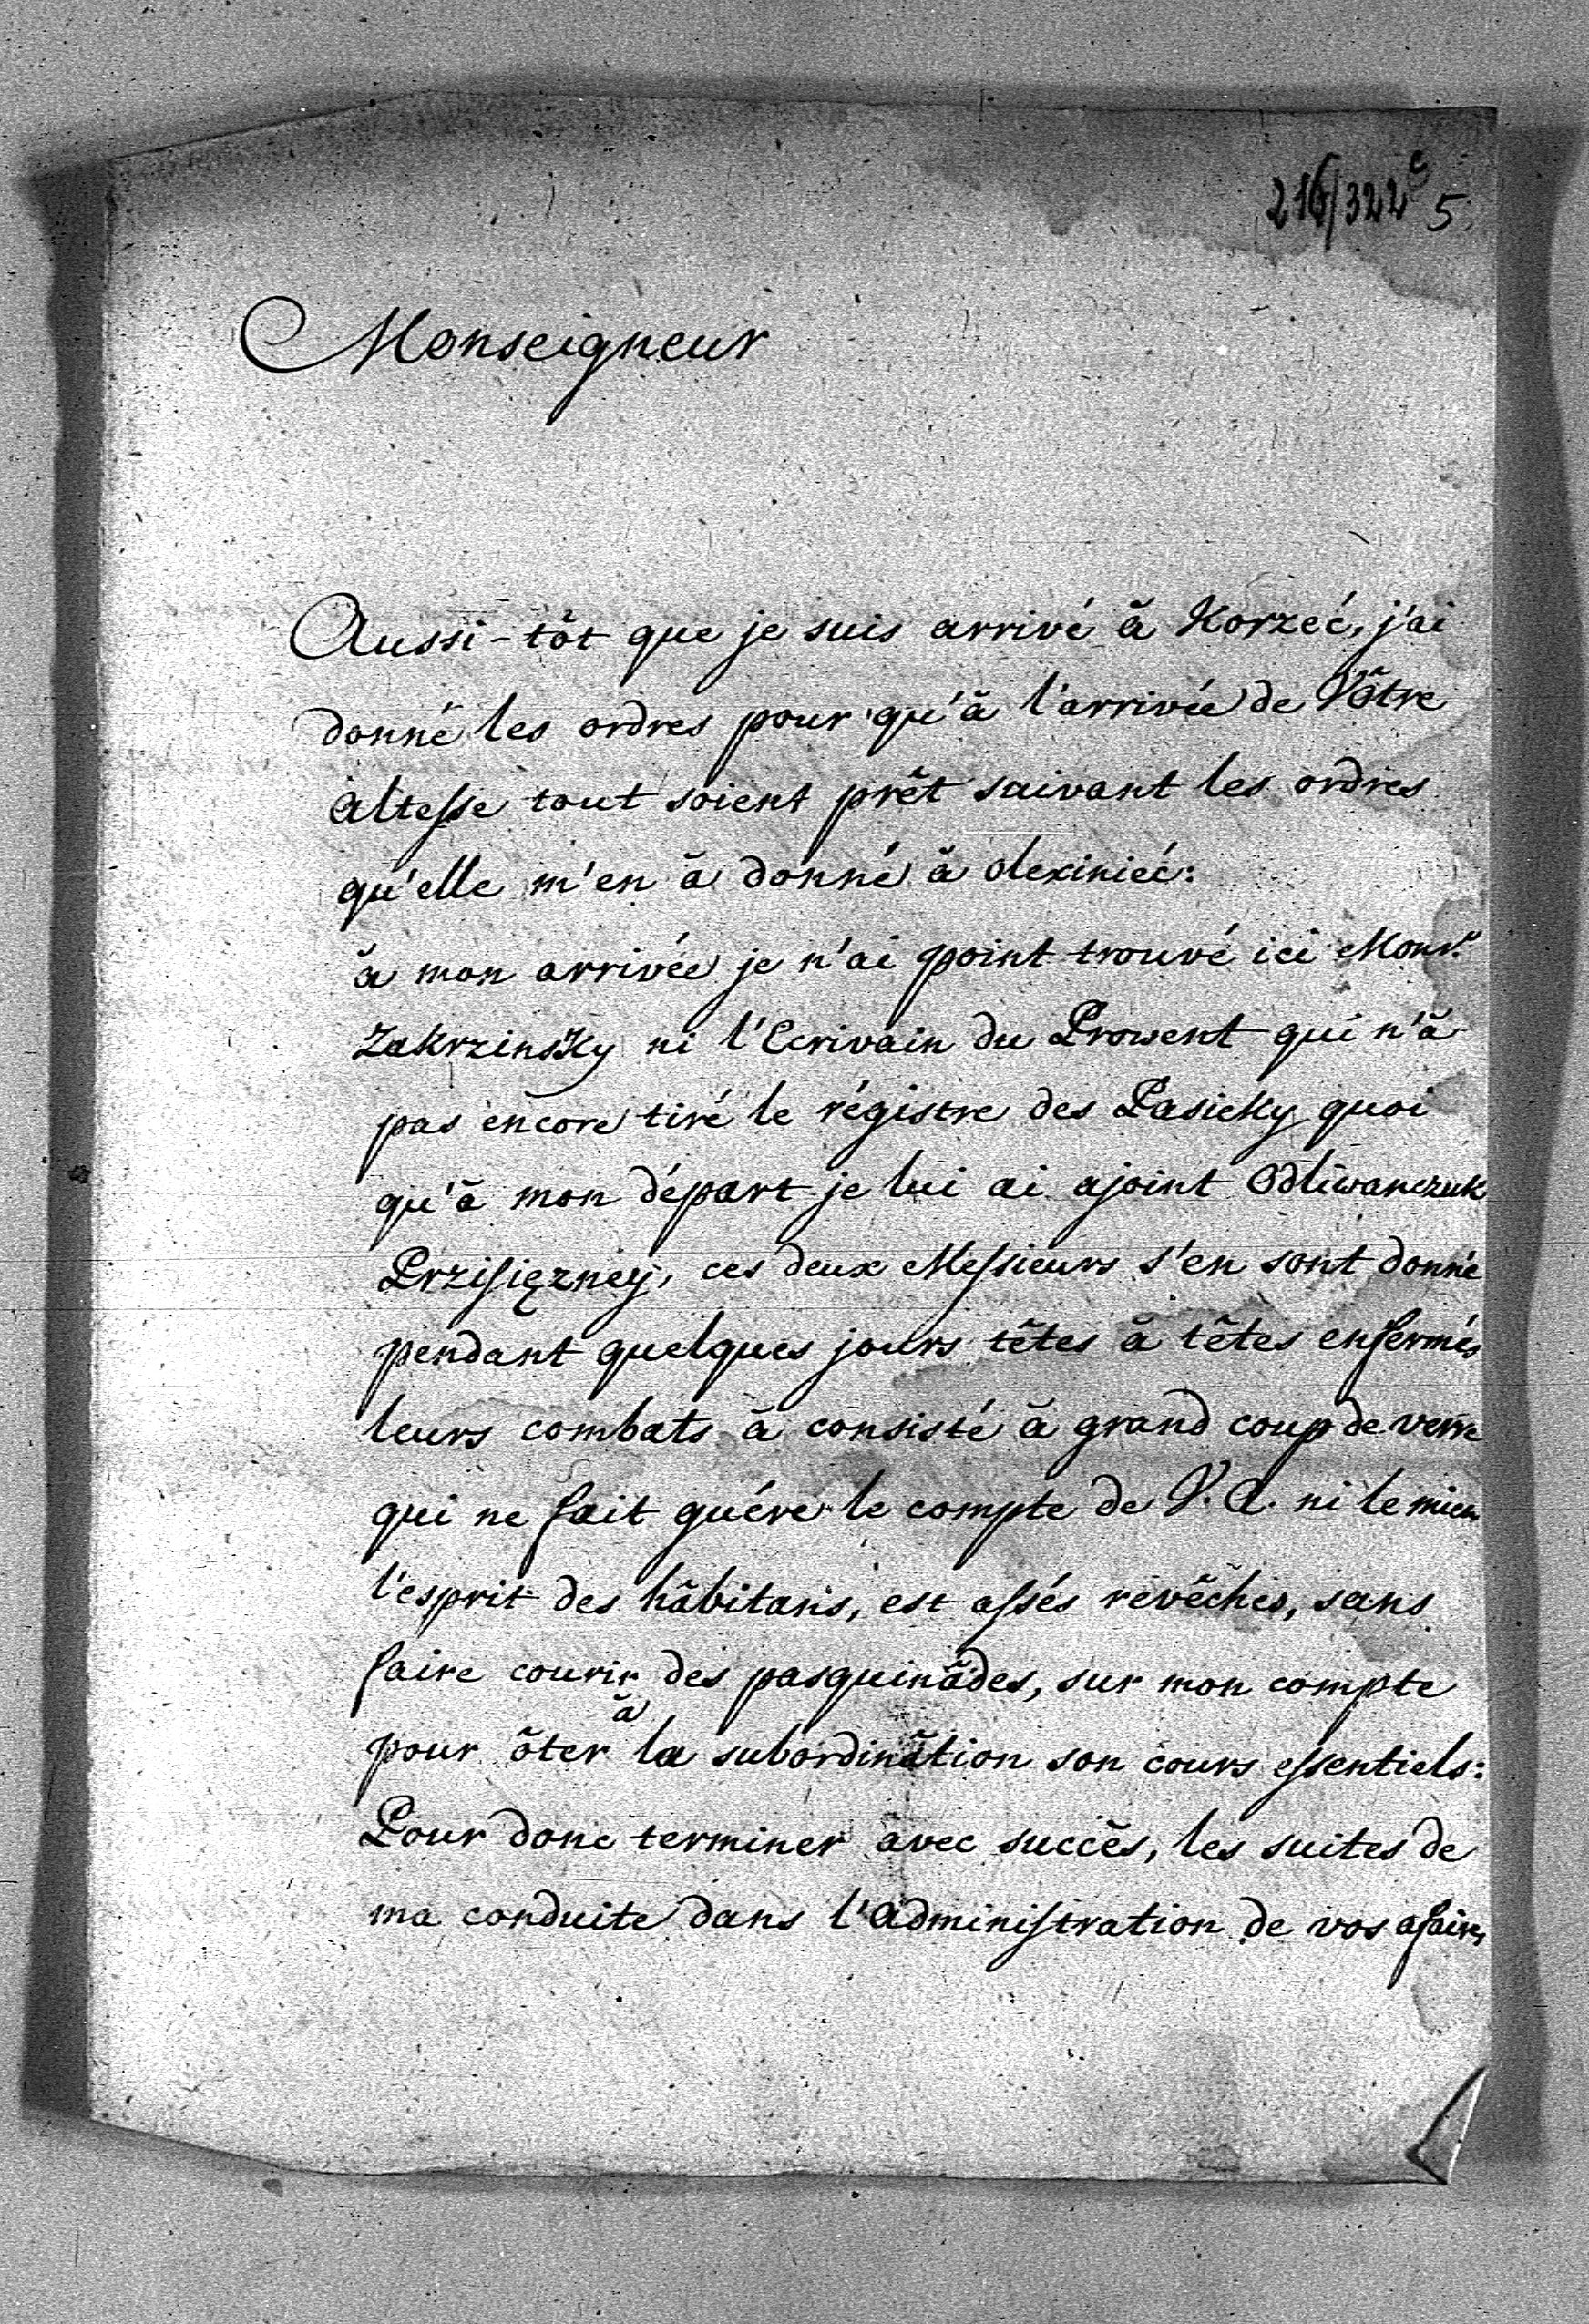 216/322c 5
Monseigneur
Aussi-tôt que je suis arrivé â Korzeć, j'ai
donné les ordres pour qu'â l'arrivée de Vôtre
Altesse tout soient prêt suivant les ordres
qu'elle m'en â donné â Olexinieć:
â mon arrivée je n'ai point trouvé ici Monsr.
Zakrzinsky ni l'Ecrivain du Prowent qui n'â
pas encore tiré le régistre des Pasieky quoi
qu'â mon départ je lui ai ajoint Odliwanczuk
Przisięzney, ces deux Messieurs s'en sont donné
pendant quelques jours têtes â têtes enfermés
leurs combats â consisté â grand coup de verre
qui ne fait guére le compte de V. A. ni le mien
l'esprit des hâbitans, est assés revêches, sans
faire courir des pasquinâdes, sur mon compte
pour ôter â la subordinâtion son cours essentiels:
Pour donc terminer avec succês, les suites de
ma conduite dans l'administration de vos afaires